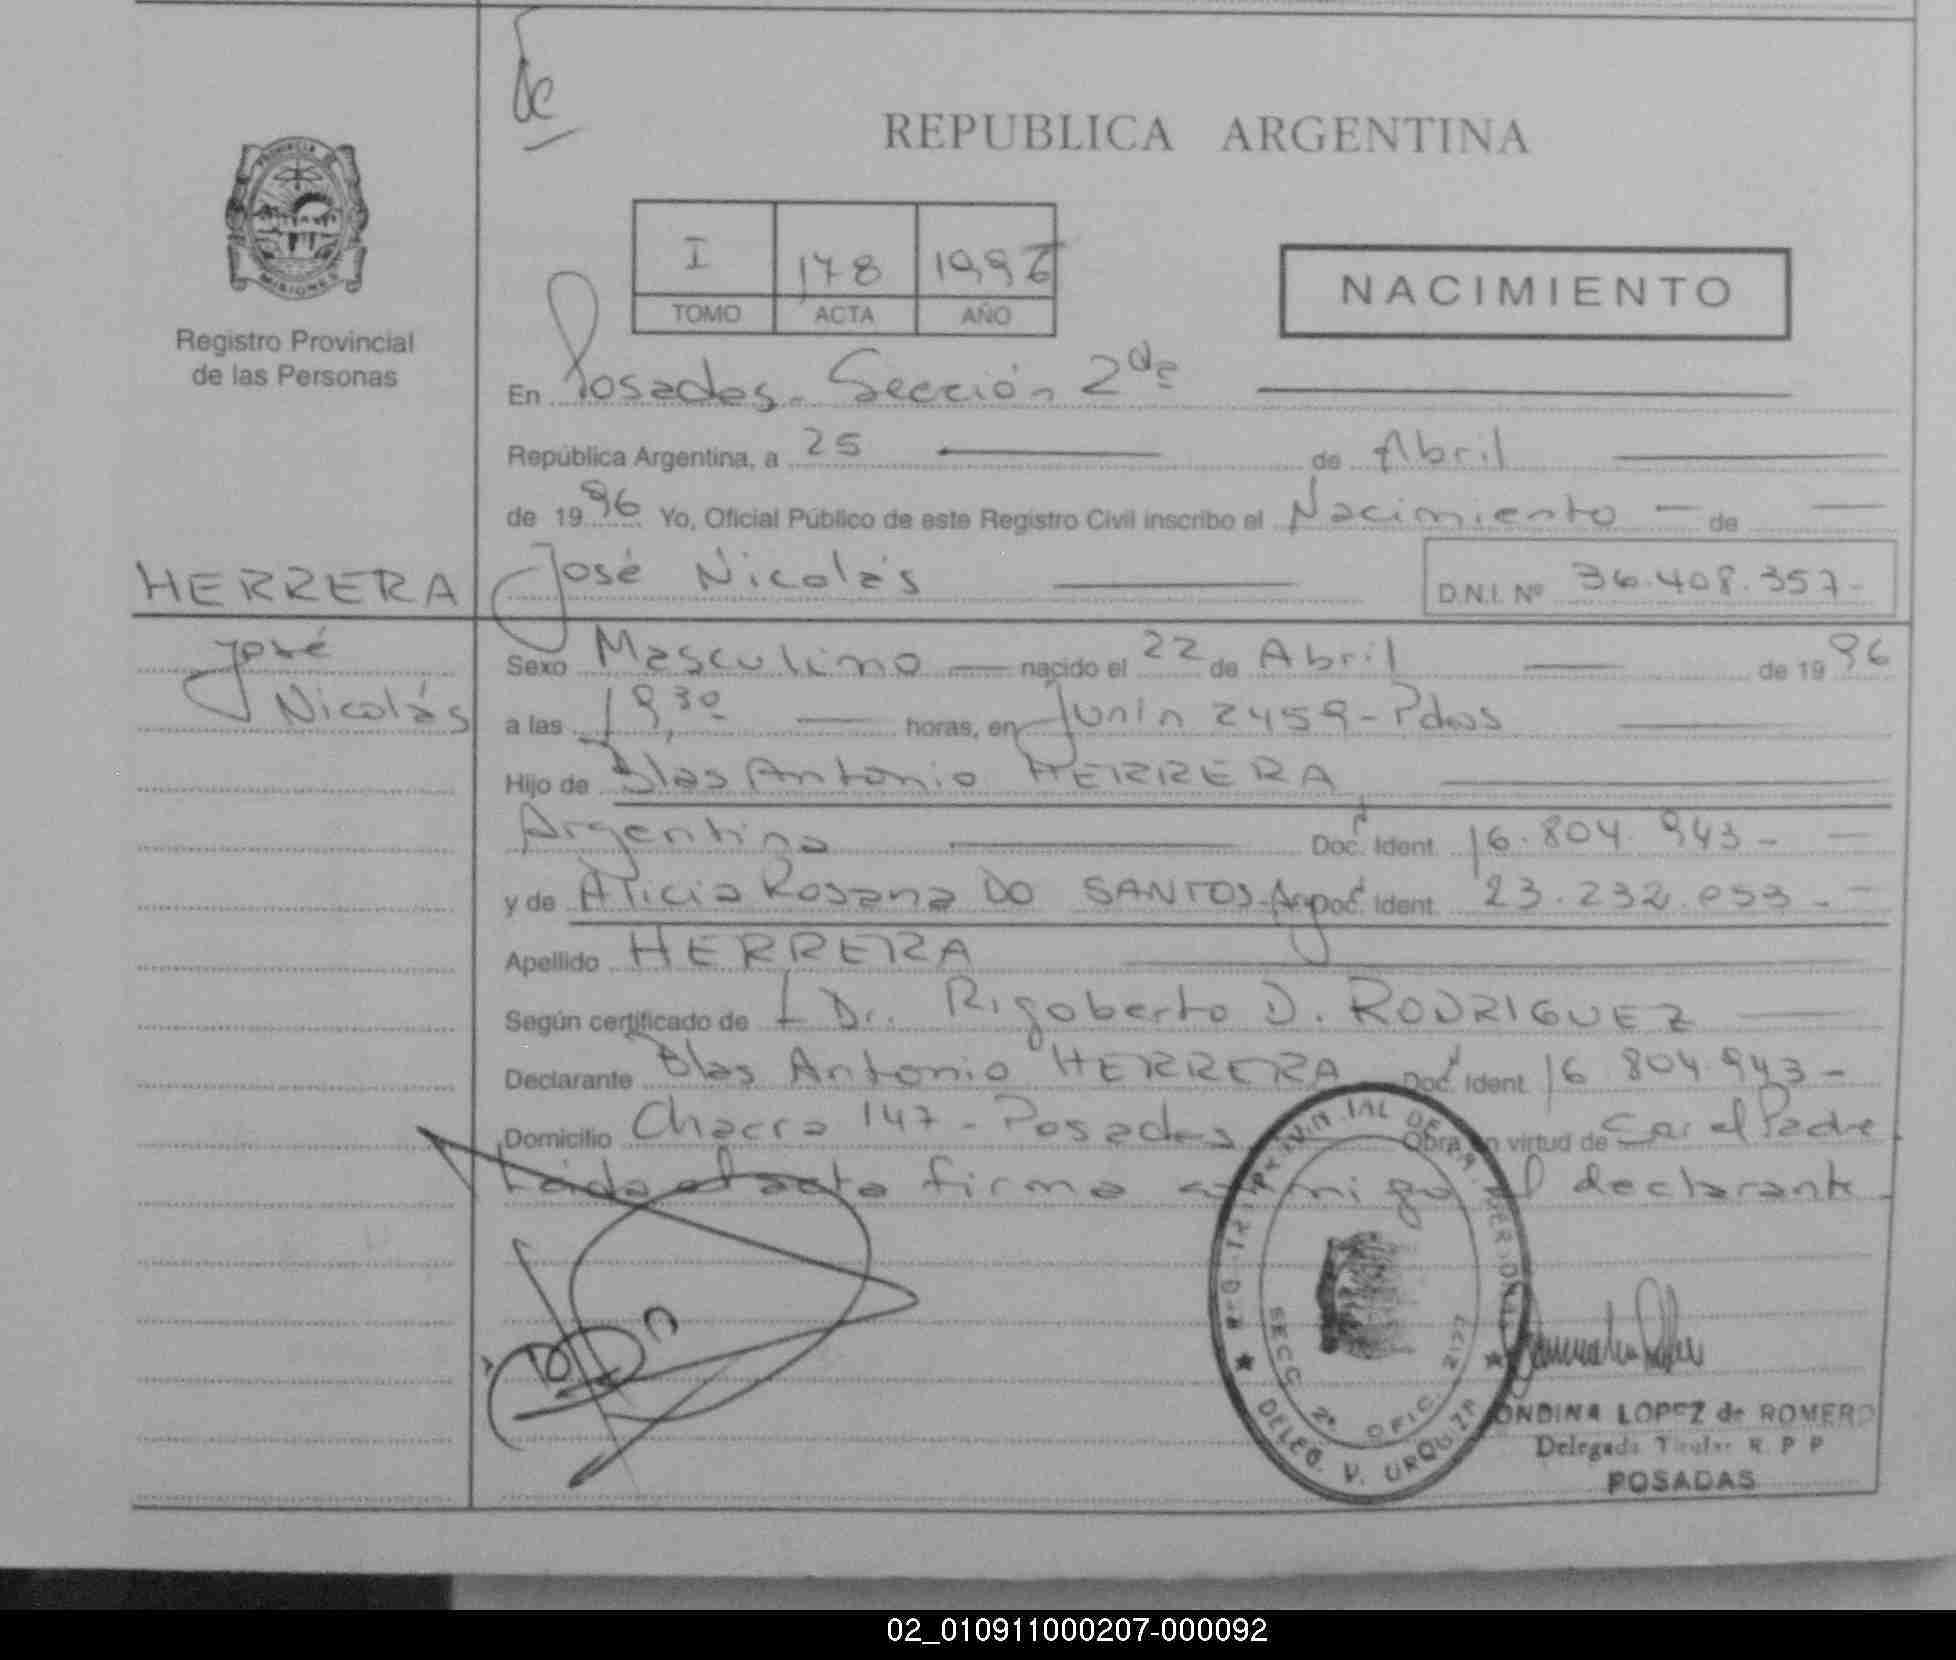 REPUBLICA ARGENTINA
PROVINCIA DE
MISIONES
Registro Provincial
de las Personas
I 178 1996
TOMO ACTA AÑO
NACIMIENTO
En Posadas - Sección 2da
República Argentina, a 25 de Abril
de 1996 Yo, Oficial Público de este Registro Civil inscribo el Nacimiento de
HERRERA José Nicolás D.N.I. Nº 36.408.357-
José
Nicolás
Sexo Masculino nacido el 22 de Abril de 1996
a las 19,30 horas, en Junin 2459 - Pdas
Hijo de Blas Antonio HERRERA
Argentina Doc. Ident. 16.804.943-
y de Alicia Rosana DO SANTOS Arg Doc. Ident. 23.232.053-
Apellido HERRERA
Según certificado de Dr. Rigoberto D. RODRIGUEZ
Declarante Blas Antonio HERRERA Doc. Ident. 16.804.943-
Domicilio Chacra 147 - Posadas Obra en virtud de Ser el Padre.
Leida el acta firma conmigo el declarante.
DELEG. V. URQUIZA
SECC 2ª OFIC. 2177
ONDINA LOPEZ de ROMERO
Delegada Titular R P P
POSADAS
02_010911000207-000092